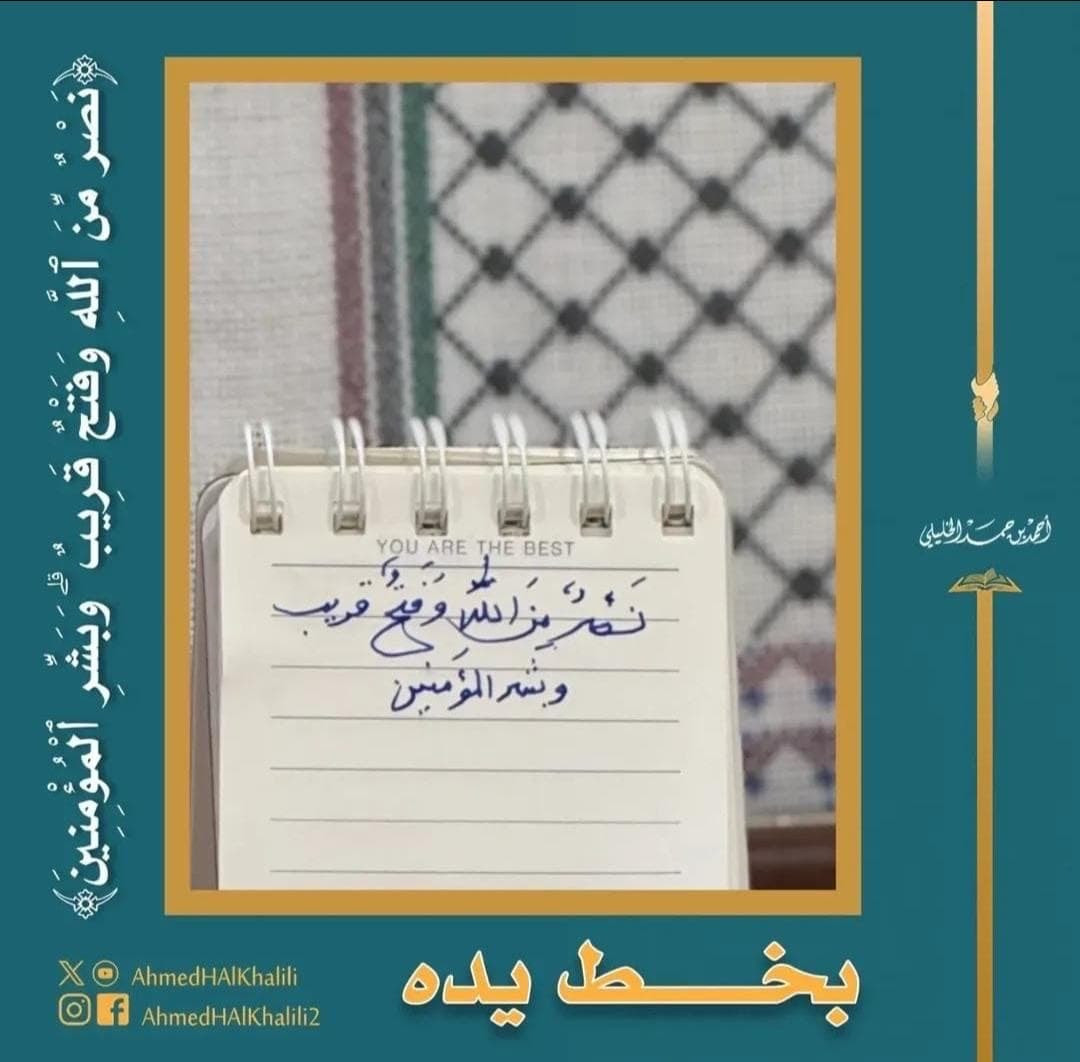 ﴿نَصۡرٞ مِّنَ ٱللَّهِ وَفَتۡحٞ قَرِيبٞۗ وَبَشِّرِ ٱلۡمُؤۡمِنِينَ﴾
YOU ARE THE BEST
نَصْرٌ مِنَ اللَّهِ وَفَتْحٌ قريب
وبشر المؤمنين
أحمد بن حمد الخليلي
بخط يده
AhmedHAlKhalili
AhmedHAlKhalili2